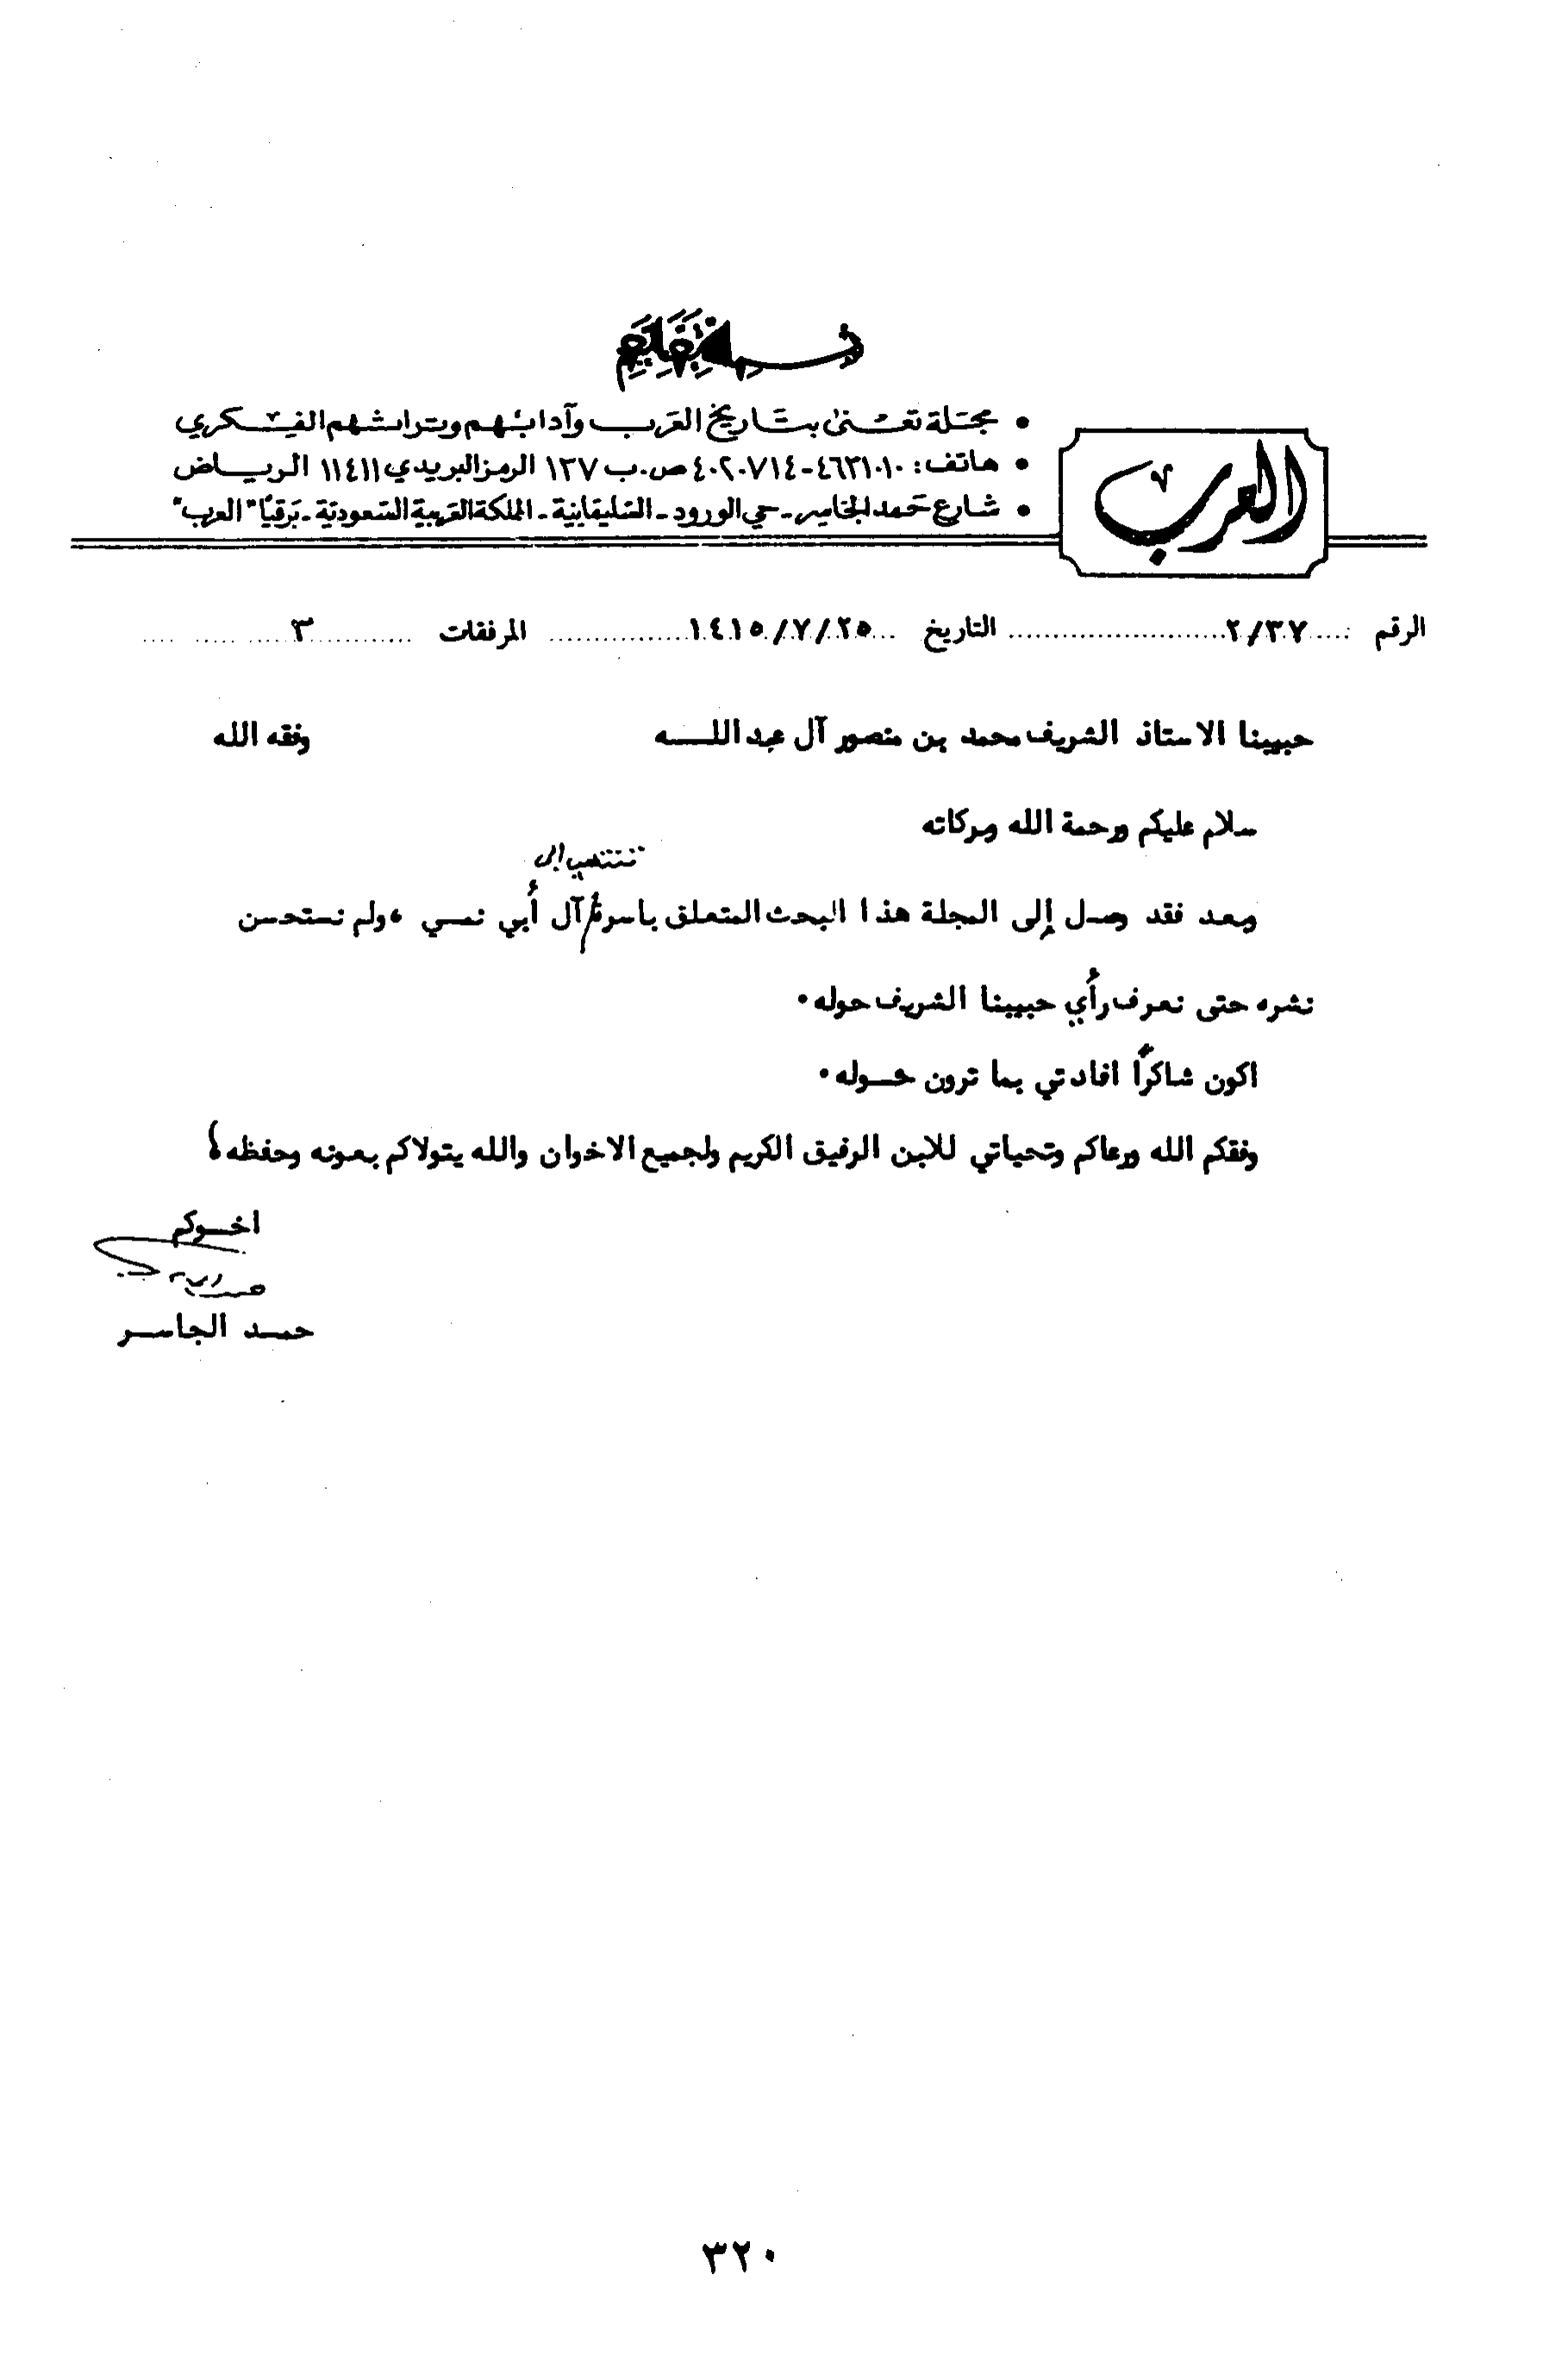 • مجلة تعنى بتاريخ العرب وآدابهم وتراثهم الفكري
• هاتف: ٤٦٣١٠١٠-٤٠٢٠٧١٤ ص.ب ١٣٧ الرمز البريدي ١١٤١١ الرياض
• شارع حمد الجاسر - حي الورود - السليمانية - المملكة العربية السعودية - برقيًا "العرب"
العرب
الرقم ٢/٣٧ التاريخ ١٤١٥/٧/٢٥ المرفقات ٣
حبيبنا الاستاذ الشريف محمد بن منصور آل عبداللـــه وفقه الله
سلام عليكم ورحمة الله وبركاته
تنتمي إلى
وبعد فقد وصل إلى المجلة هذا البحث المتعلق باسرة آل أبي نمسي ، ولم نستحسن
نشره حتى نعرف رأي حبيبنا الشريف حوله .
اكون شاكرًا افادتي بما ترون حوله .
وفقكم الله ورعاكم وتحياتي للابن الرفيق الكريم ولجميع الاخوان والله يتولاكم بعونه وحفظه ،
اخوكم
حمد الجاسر
٣٢٠